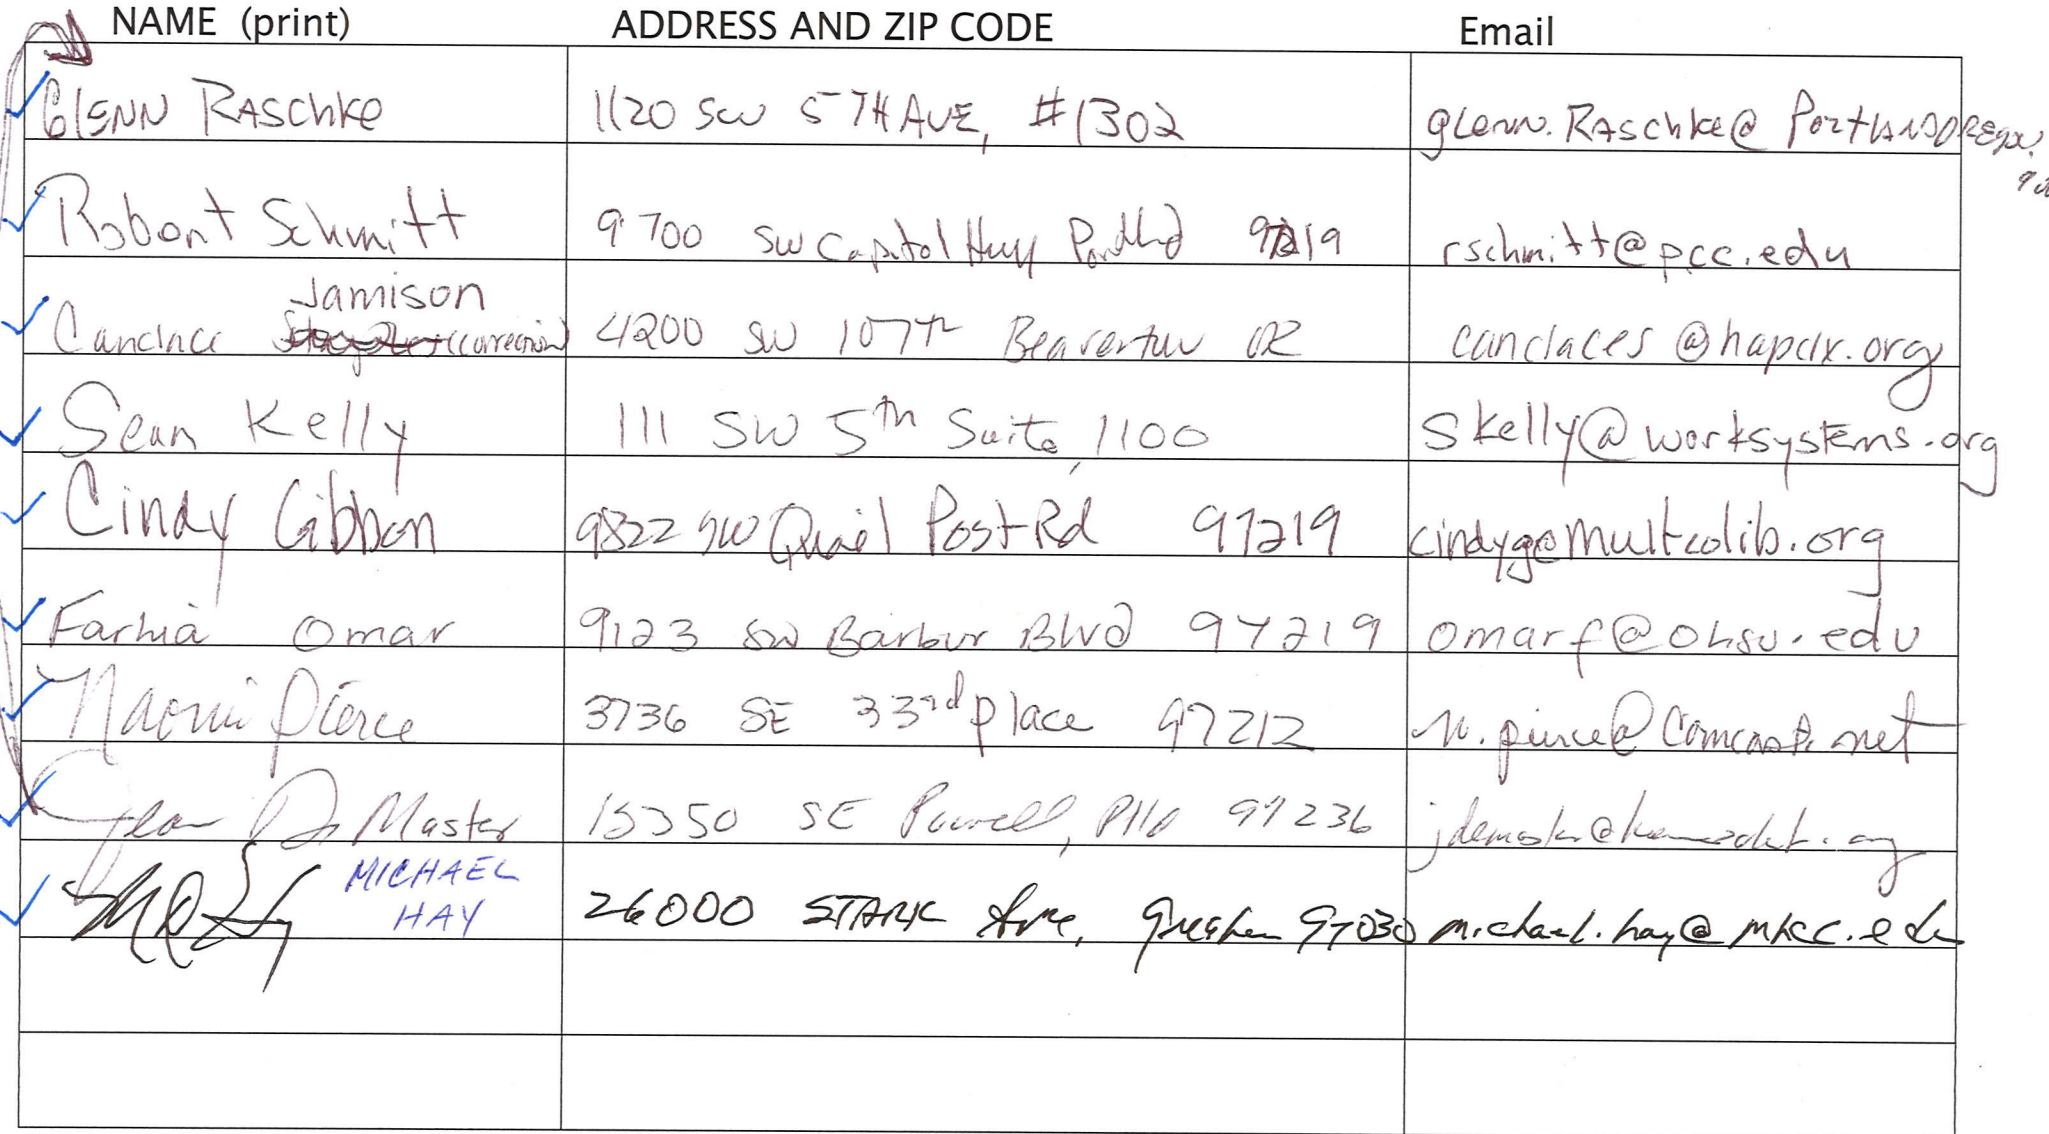 NAME (print) ADDRESS AND ZIP CODE Email
GLENN RASCHKE 1120 SW 5TH AVE, #1302 glenn.RASchke@PortLANDOREgon.
Robert Schmitt 9700 SW Capitol Hwy Portland 97219 rschmitt@pcc.edu
Jamison
Candace (correction) 4200 SW 107th Beaverton OR candaces@hapdx.org
Sean Kelly 111 SW 5th Suite 1100 skelly@worksystems.org
Cindy Gibbon 9822 SW Quail Post Rd 97219 cindyg@multcolib.org
Farhia Omar 9123 SW Barbur Blvd 97219 omarf@ohsu.edu
Naomi Pierce 3736 SE 33rd place 97212 n.pierce@comcast.net
Jean DeMaster 15350 SE Powell, 97236
MICHAEL
HAY 26000 STARK Ave, Gresham 97030 michael.hay@mhcc.edu